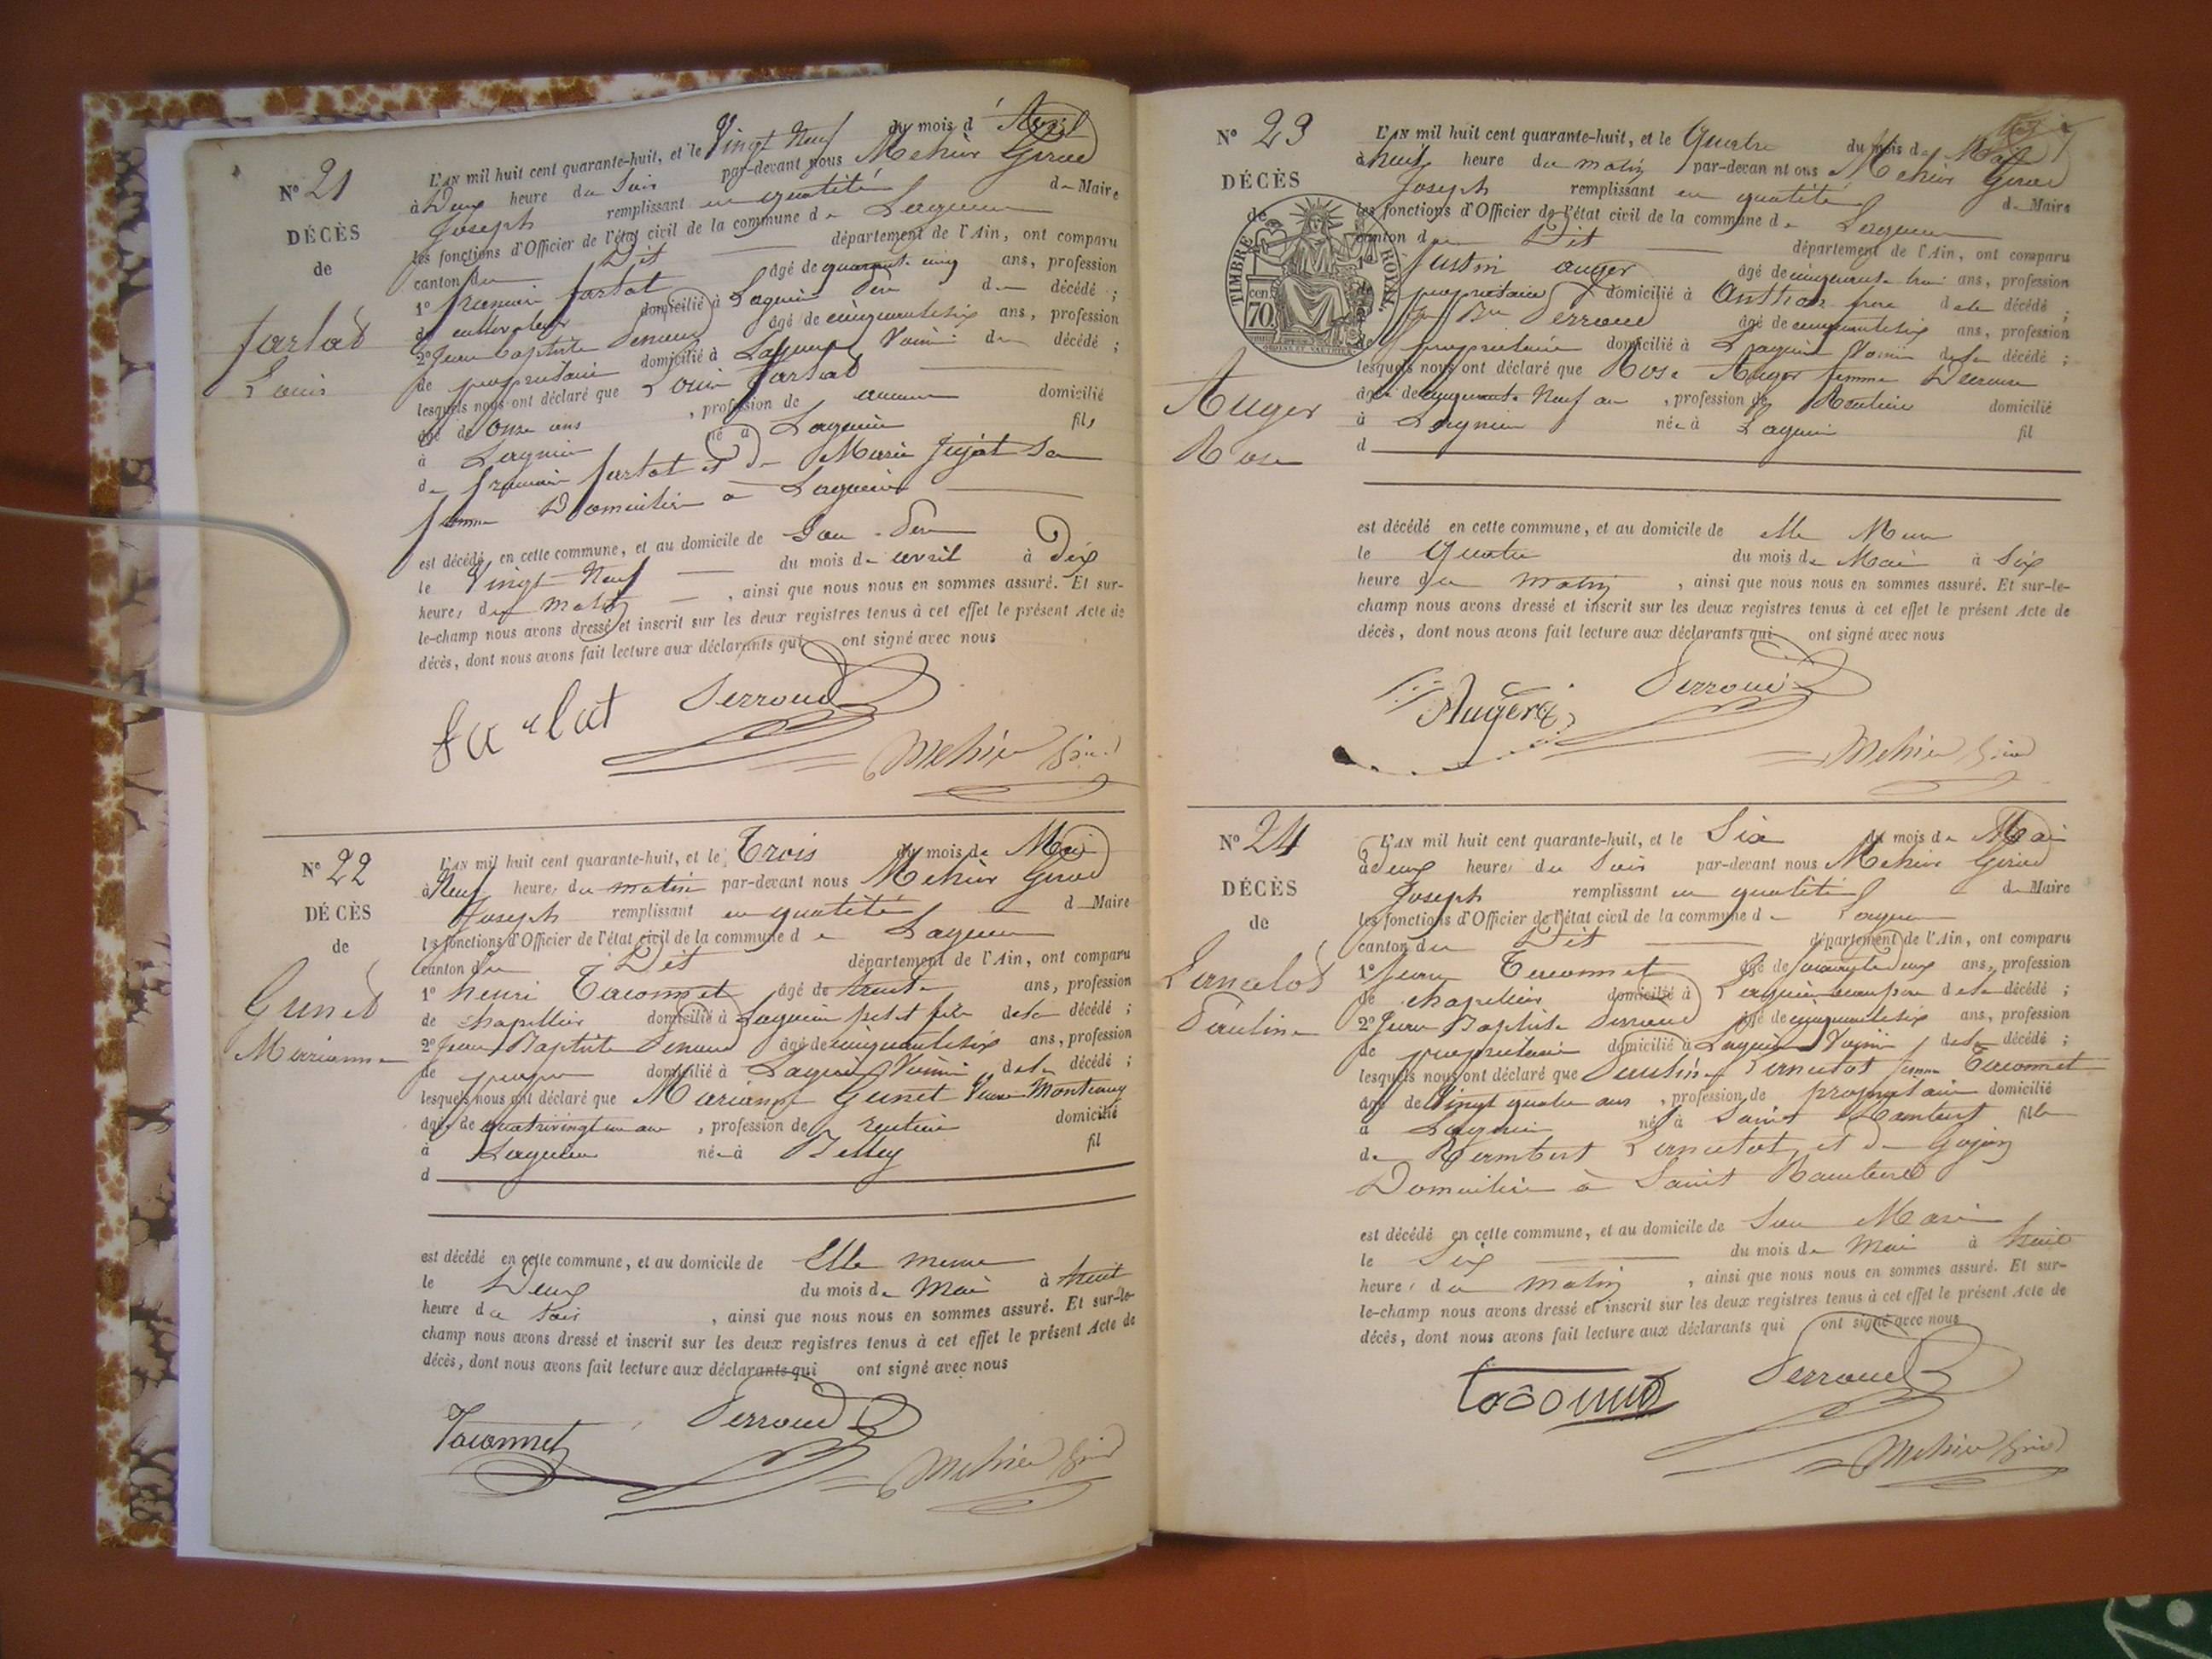 N° 21
DÉCÈS
de
Jarlat
Louis
L'AN mil huit cent quarante-huit, et le Vingt Neuf du mois d'Avril
à Deux heure du Soir par-devant nous Mehier Girod
Joseph remplissant en qualité de Maire
les fonctions d'Officier de l'état civil de la commune de Lagnieu
canton du Dit département de l'Ain, ont comparu
1° Jarlat âgé de quarante cinq ans, profession
de cultivateur domicilié à Lagnieu Père du décédé ;
2° Jean Baptiste Perroud âgé de cinquante six ans, profession
de propriétaire domicilié à Lagnieu Voisin du décédé ;
lesquels nous ont déclaré que Louis Jarlat
âgé de Onze ans , profession de aucune domicilié
à Lagnieu né à Lagnieu fils
de Jarlat et de Marie Jujat Sa
femme Domiciliés à Lagnieu
est décédé en cette commune, et au domicile de Son Père
le Vingt Neuf du mois de avril à Dix
heures du matin , ainsi que nous nous en sommes assuré. Et sur-
le-champ nous avons dressé et inscrit sur les deux registres tenus à cet effet le présent Acte de
décès, dont nous avons fait lecture aux déclarants qui ont signé avec nous
Jarlat Perroud
Mehier Girod
N° 22
DÉCÈS
de
Gunet
Marianne
L'AN mil huit cent quarante-huit, et le Trois du mois de Mai
à Neuf heures du matin par-devant nous Mehier Girod
Joseph remplissant en qualité de Maire
les fonctions d'Officier de l'état civil de la commune de Lagnieu
canton du Dit département de l'Ain, ont comparu
1° henri Taconnet âgé de trente ans, profession
de chapellier domicilié à Lagnieu petit fils de la décédé ;
2° Jean Baptiste Perroud âgé de cinquante six ans, profession
de domicilié à Lagnieu Voisin de la décédé ;
lesquels nous ont déclaré que Marianne Gunet Veuve
âgée de quatrevingt un ans , profession de rentière domicilié
à Lagnieu née à Belley fil
d
est décédé en cette commune, et au domicile de Elle meme
le Deux du mois de Mai à huit
heure du Soir , ainsi que nous nous en sommes assuré. Et sur-le-
champ nous avons dressé et inscrit sur les deux registres tenus à cet effet le présent Acte de
décès, dont nous avons fait lecture aux déclarants qui ont signé avec nous
Taconnet Perroud
Mehier Girod
N° 23
DÉCÈS
de
TIMBRE ROYAL
70 cen.
Auger
Rose
L'AN mil huit cent quarante-huit, et le Quatre du mois de Mai
à huit heure du matin par-devan nt ous Mehier Girod
Joseph remplissant en qualité de Maire
les fonctions d'Officier de l'état civil de la commune de Lagnieu
canton du Dit département de l'Ain, ont comparu
1° Justin auger âgé de cinquante trois ans, profession
de propriétaire domicilié à Anthon frere de la décédé ;
Perroud âgé de cinquante six ans, profession
de propriétaire domicilié à Lagnieu Voisin de la décédé ;
lesquels nous ont déclaré que Rose Auger femme
âgée de cinquante Neuf ans , profession de Rentière domicilié
à Lagnieu née à Lagnieu fil
d
est décédé en cette commune, et au domicile de elle Meme
le Quatre du mois de Mai à Six
heure du matin , ainsi que nous nous en sommes assuré. Et sur-le-
champ nous avons dressé et inscrit sur les deux registres tenus à cet effet le présent Acte de
décès, dont nous avons fait lecture aux déclarants qui ont signé avec nous
Auger Perroud
Mehier Girod
N° 24
DÉCÈS
de
Lancelot
Pauline
L'AN mil huit cent quarante-huit, et le Six du mois de Mai
à deux heures du Soir par-devant nous Mehier Girod
Joseph remplissant en qualité de Maire
les fonctions d'Officier de l'état civil de la commune de Lagnieu
canton du Dit département de l'Ain, ont comparu
1° Jean Taconnet âgé de ans, profession
de chapellier domicilié à Lagnieu beau père de la décédé ;
2° Jean Baptiste Perroud âgé de cinquante six ans, profession
de propriétaire domicilié à Lagnieu Voisin de la décédé ;
lesquels nous ont déclaré que Pauline femme Taconnet
âgé de Vingt quatre ans , profession de propriétaire domicilié
à Lagnieu né à Saint Rambert fille
de Rambert et de Gojon
Domiciliés à Saint Rambert
est décédé en cette commune, et au domicile de Son Mari
le Six du mois de Mai à huit
heures du matin , ainsi que nous nous en sommes assuré. Et sur-
le-champ nous avons dressé et inscrit sur les deux registres tenus à cet effet le présent Acte de
décès, dont nous avons fait lecture aux déclarants qui ont signé avec nous
Taconnet Perroud
Mehier Girod